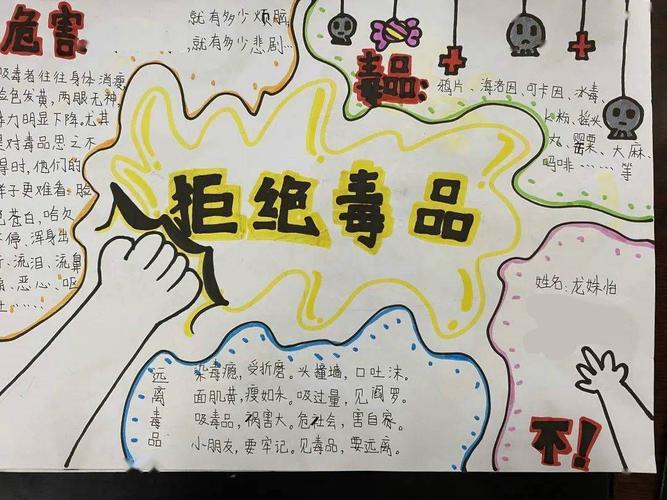 危害
就有多少烦脑
,就有多少悲剧...
吸毒者往往身体消瘦
脸色发黄，两眼无神，
力明显下降。尤其
是对毒品思之不
得时，他们的
样子更难看。脸
色苍白，哈欠
不停、浑身出
、流泪、流鼻
、恶心、呕
吐……
毒品:
鸦片、海洛因、可卡因、冰毒、
K粉、摇头
丸、罂粟、大麻、
吗啡……等
拒绝毒品
姓名:龙姝怡
不!
远离毒品
染毒瘾，受折磨。头撞墙，口吐沫。
面肌黄，瘦如朱。吸过量，见阎罗。
吸毒品，祸害大。危社会，害自家。
小朋友，要牢记。见毒品，要远离。